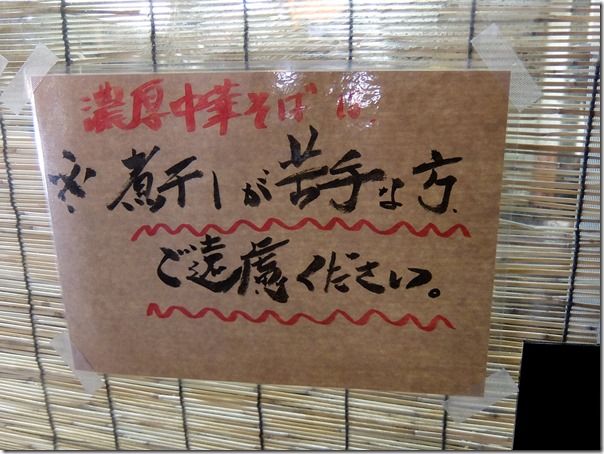 濃厚中華そばは、
※煮干しが苦手な方、
ご遠慮ください。